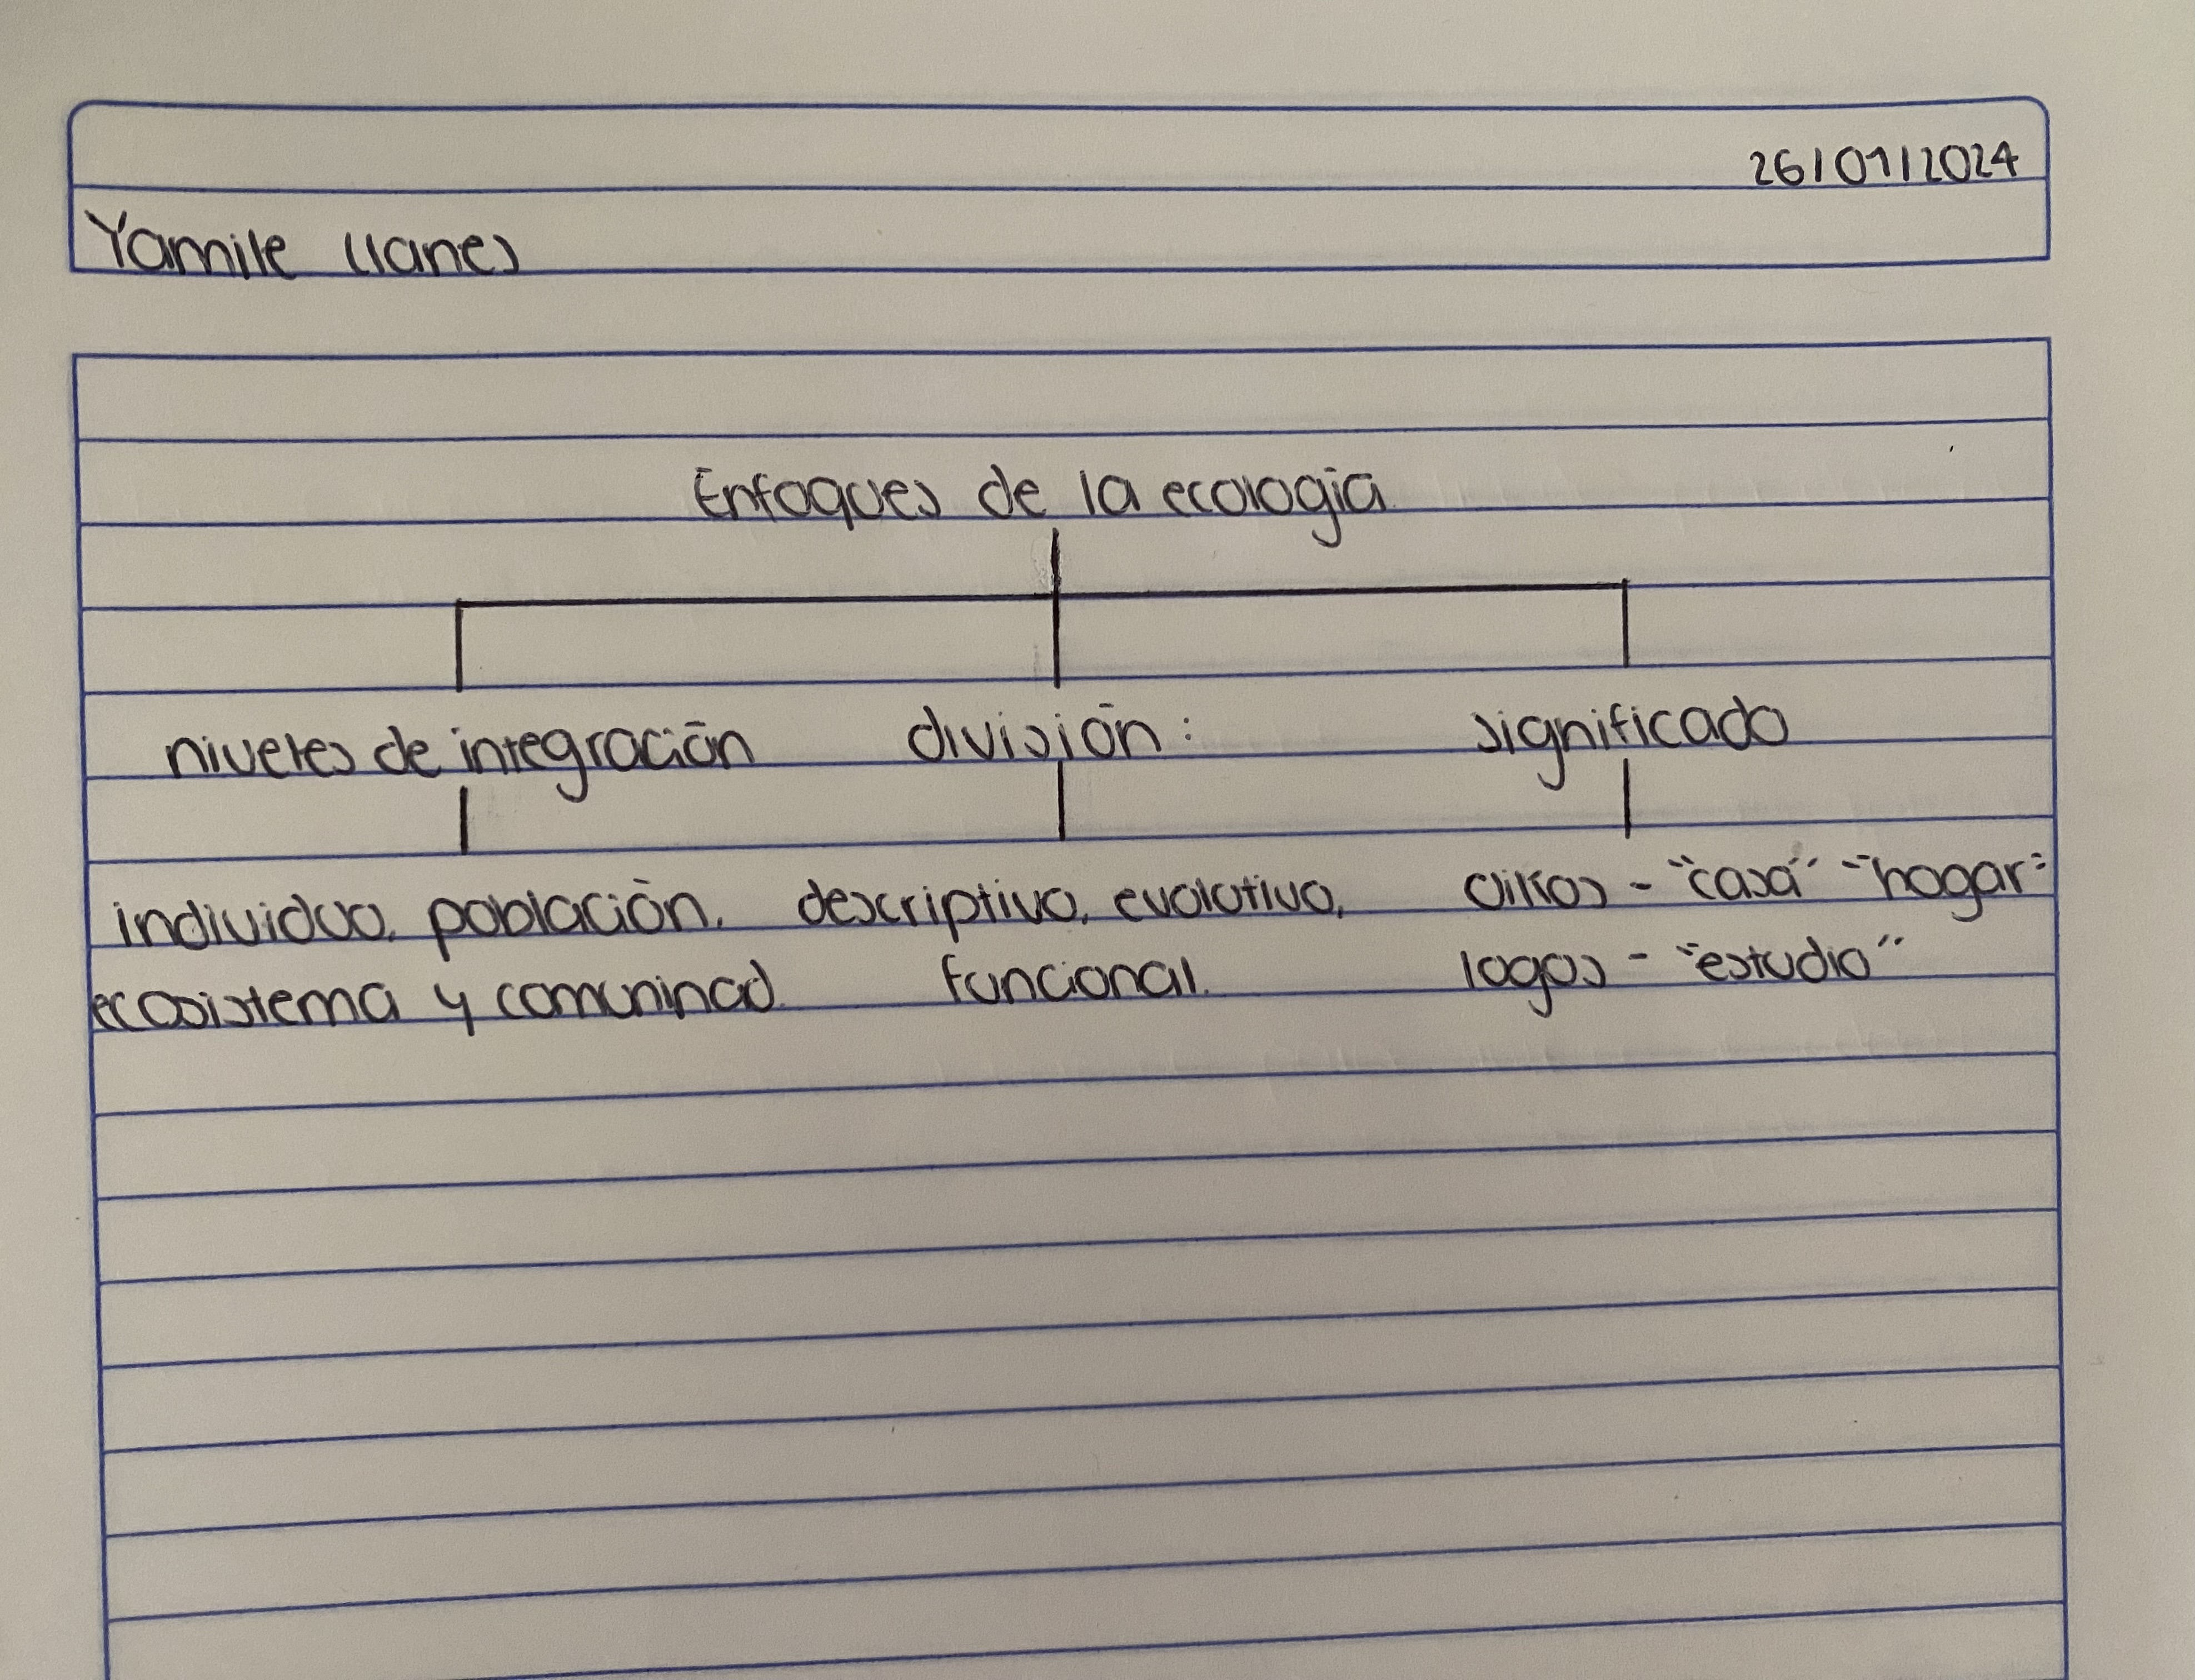 26/01/2024
Yamile Llanes
Enfoques de la ecología
niveles de integración división: significado
individuo, población, descriptivo, evolutivo, oikos - "casa" "hogar"
ecosistema y comuninad. funcional. logos - "estudio"